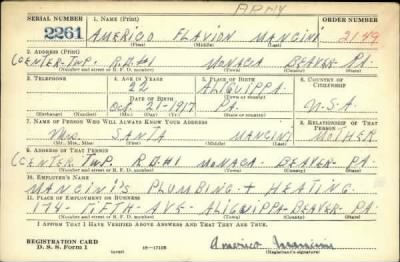 ARMY
SERIAL NUMBER 1. Name (Print) ORDER NUMBER
2261 AMERICO FLAVION MANCINI 2149
(First) (Middle) (Last)
2. Address (Print)
CENTER-TWP. R.D.#1 MONACA BEAVER PA.
(Number and street or R. F. D. number) (Town) (County) (State)
3. Telephone 4. Age in Years 5. Place of Birth 6. Country of Citizenship
22 ALIQUIPPA
Date of Birth (Town or county)
Oct. 21-1917 PA. U.S.A.
(Exchange) (Number) (Mo.) (Day) (Yr.) (State or country)
7. Name of Person Who Will Always Know Your Address 8. Relationship of That Person
Mrs. SANTA MANCINI MOTHER
(Mr., Mrs., Miss) (First) (Middle) (Last)
9. Address of That Person
CENTER TWP. R.D.#1 MONACA- BEAVER- PA.
(Number and street or R. F. D. number) (Town) (County) (State)
10. Employer's Name
MANCINI'S PLUMBING + HEATING
11. Place of Employment or Business
174- FIFTH-AVE- ALIQUIPPA-BEAVER-PA.
(Number and street or R. F. D. number) (Town) (County) (State)
I Affirm That I Have Verified Above Answers and That They Are True.
REGISTRATION CARD
D. S. S. Form 1 (over) 16—17105 Americo Mancini
(Registrant's signature)